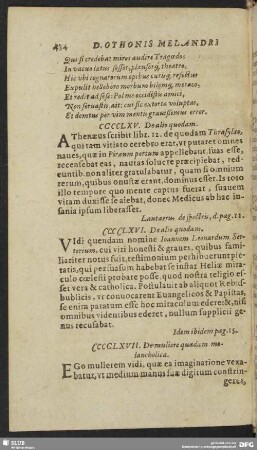 424 D. OTHONIS MELANDRI
Qui se credebat miros audire Tragœdos
In vacuo lætus sessor, plausorq́; theatro,
Hic ubi cognatorum opibus curisq́; refectus
Expulit helleboro morbum bilemq́; meraco,
Et redit ad sese: Pol me occidistis amici,
Non servastis, ait: cui sic extorta voluptas,
Et demtus per vim mentis gravissimus error.
CCCCLXV. De alio quodam.
AThenæus scribit libr. 12. de quodam Thrasyleo,
qui tam vitiato cerebro erat, ut putaret omnes
naues, quæ in Piræum portum appellebant suas esse,
recensebat eas, nautas solucre præcipiebat, red-
euntib. non aliter gratulabatur, quam si omnium
rerum, quibus onustæ erant, dominus esset. Is toto
illo tempore quo mente captus fuerat, suauem
vitam duxisse se aiebat, donec Medicus ab hac in-
sania ipsum liberasset.
de spectris, d. pag. 12.
CCCCLXVI. De alio quodam.
VIdi quendam nomine Ioannem Leonardum Ser-
torium, cui viri honesti & graues, quibus fami-
liariter notus fuit, testimonium perhibuerunt pie-
tatis, qui persuasum habebat se instar Heliæ mira-
culo cœlesti probare posse, quod nostra religio es-
set vera & catholica. Postulauit ab aliquot Rebus-
publicis, vt conuocarent Euangelicos & Papistas,
se enim paratum esse hoc miraculum edere: &, nisi
omnibus videntibus ederet, nullum supplicii ge-
nus recusabat.
Idem ibidem pag. 15.
CCCCLXVII. De muliere quadam me-
lancholica.
EGo mulierem vidi, quæ ea imaginatione vexa-
batur, vt medium manus suæ digitum constrin-
geret,
SLUB
DFG